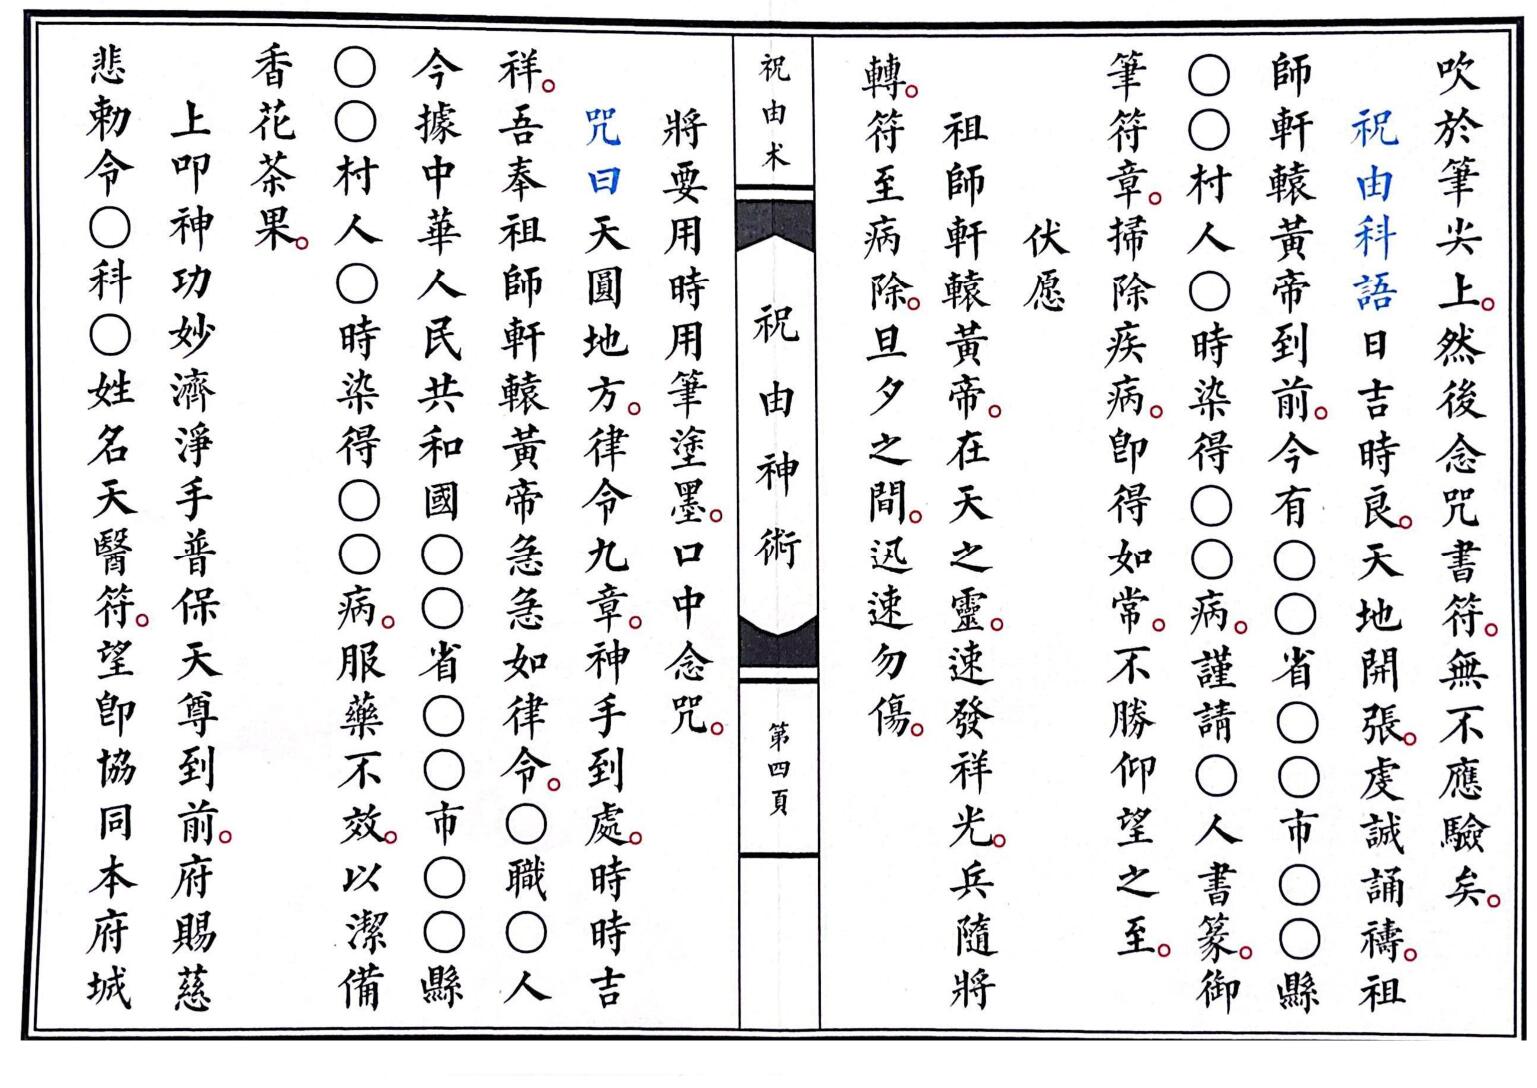 吹於筆尖上。然後念咒書符。無不應驗矣。
祝由科語日吉時良。天地開張。虔誠誦禱。祖
師軒轅黃帝到前。今有〇〇省〇〇市〇〇縣
〇〇村人〇時染得〇〇病。謹請〇人書篆。御
筆符章。掃除疾病。卽得如常。不勝仰望之至。
伏愿
祖師軒轅黃帝。在天之靈。速發祥光。兵隨將
轉。符至病除。旦夕之間。迅速勿傷。
祝由术
祝由神術
第四頁
將要用時用筆塗墨。口中念咒。
咒曰天圓地方。律令九章。神手到處。時時吉
祥。吾奉祖師軒轅黃帝急急如律令。〇職〇人
今據中華人民共和國〇〇省〇〇市〇〇縣
〇〇村人〇時染得〇〇病。服藥不效。以潔備
香花茶果。
上叩神功妙濟淨手普保天尊到前。府賜慈
悲勅令〇科〇姓名天醫符。望卽協同本府城